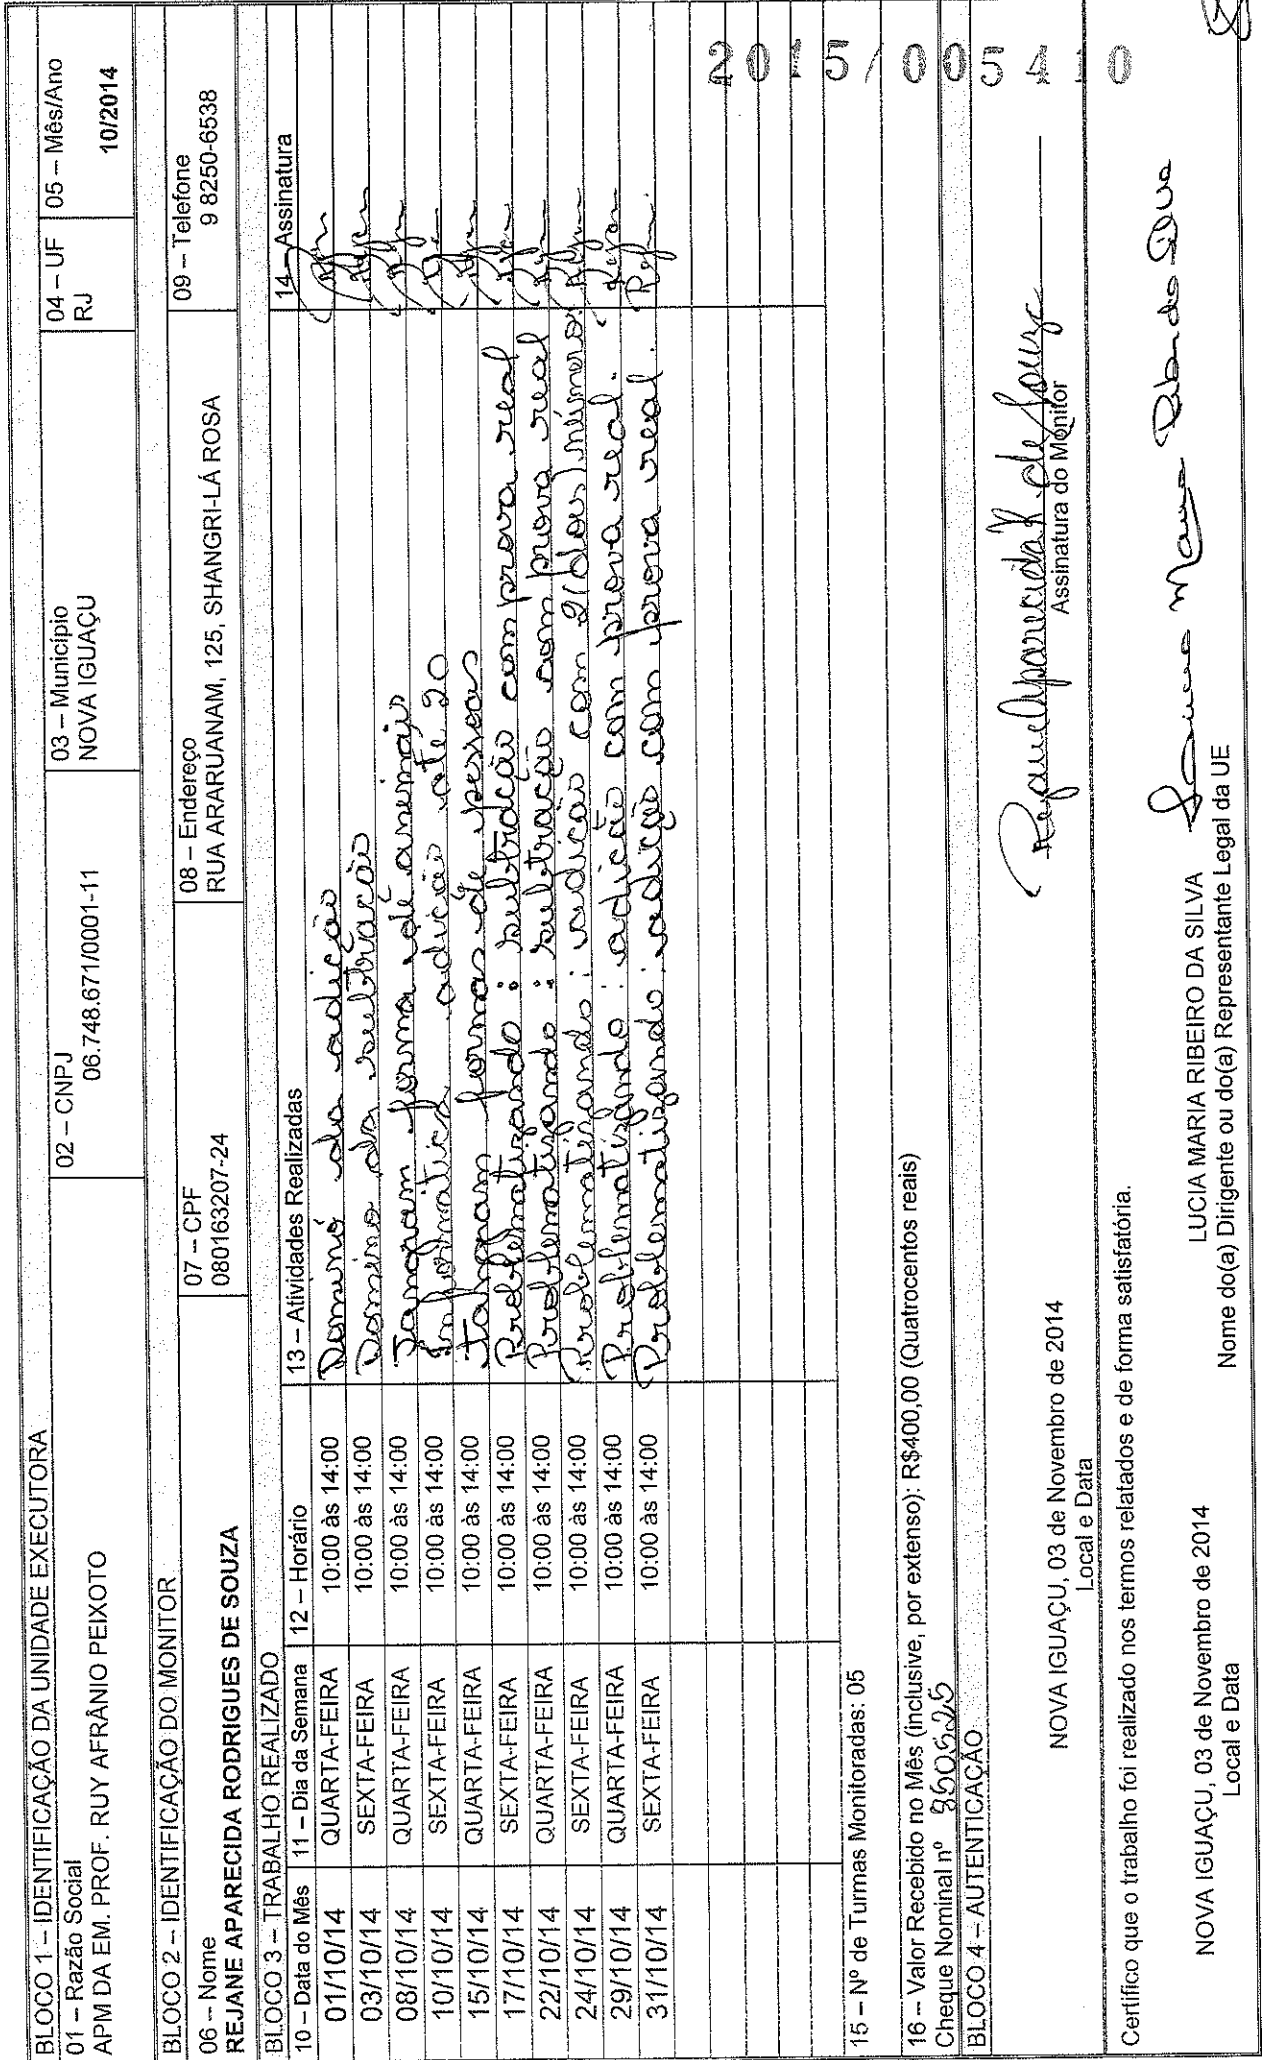 BLOCO 1 – IDENTIFICAÇÃO DA UNIDADE EXECUTORA
01 – Razão Social
APM DA EM. PROF. RUY AFRÂNIO PEIXOTO
02 – CNPJ
06.748.671/0001-11
03 – Município
NOVA IGUAÇU
04 – UF
RJ
05 – Mês/Ano
10/2014
BLOCO 2 – IDENTIFICAÇÃO DO MONITOR
06 – Nome
REJANE APARECIDA RODRIGUES DE SOUZA
07 – CPF
080163207-24
08 – Endereço
RUA ARARUANAM, 125, SHANGRI-LÁ ROSA
09 – Telefone
9 8250-6538
BLOCO 3 – TRABALHO REALIZADO
10 – Data do Mês 11 – Dia da Semana 12 – Horário 13 – Atividades Realizadas 14 – Assinatura
01/10/14 QUARTA-FEIRA 10:00 às 14:00 Dominó da adição
03/10/14 SEXTA-FEIRA 10:00 às 14:00 Domino da subtração
08/10/14 QUARTA-FEIRA 10:00 às 14:00 Tangram forma de animais
10/10/14 SEXTA-FEIRA 10:00 às 14:00 Informática adição até 20
15/10/14 QUARTA-FEIRA 10:00 às 14:00 Tangram formas de pessoas
17/10/14 SEXTA-FEIRA 10:00 às 14:00 Problematizando : subtração com prova real
22/10/14 QUARTA-FEIRA 10:00 às 14:00 Problematizando : subtração com prova real
24/10/14 SEXTA-FEIRA 10:00 às 14:00 Problematizando : adição com 2 (dois) números
29/10/14 QUARTA-FEIRA 10:00 às 14:00 Problematizando : adição com prova real.
31/10/14 SEXTA-FEIRA 10:00 às 14:00 Problematizando : adição com prova real.
2015/005410
15 – Nº de Turmas Monitoradas: 05
16 – Valor Recebido no Mês (inclusive, por extenso): R$400,00 (Quatrocentos reais)
Cheque Nominal nº
BLOCO 4 – AUTENTICAÇÃO
Rejane Aparecida R. de Souza
NOVA IGUAÇU, 03 de Novembro de 2014
Local e Data
Assinatura do Monitor
Certifico que o trabalho foi realizado nos termos relatados e de forma satisfatória.
NOVA IGUAÇU, 03 de Novembro de 2014
Local e Data
LUCIA MARIA RIBEIRO DA SILVA
Nome do(a) Dirigente ou do(a) Representante Legal da UE